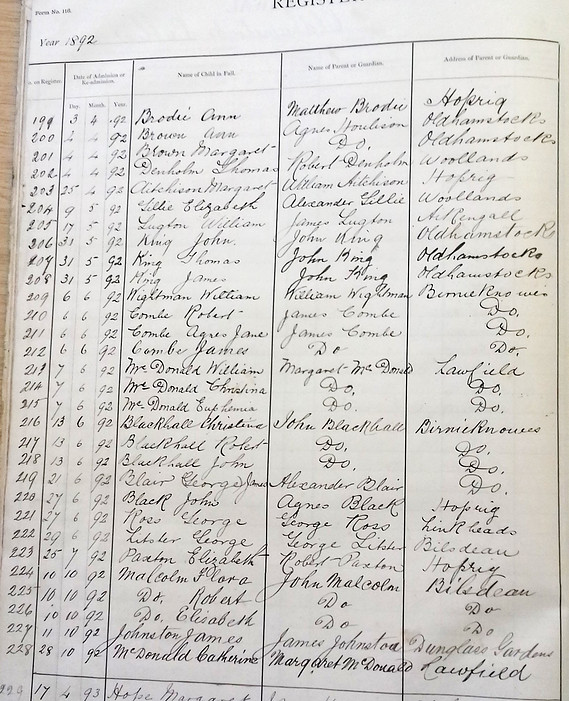 REGISTER
Form No. 116.
Year 1892
on Register. Date of Admission or Re-admission. Name of Child in Full. Name of Parent or Guardian. Address of Parent or Guardian.
Day. Month. Year.
199 3 4 92 Brodie Ann Matthew Brodie Hoprig
200 4 4 92 Brown Ann Agnes Oldhamstocks
201 4 4 92 Brown Margaret Do. Oldhamstocks
202 4 4 92 Denholm Thomas Robert Denholm Woollands
203 25 4 92 Aitchison Margaret William Aitchison Hoprig
204 9 5 92 Gillie Elizabeth Alexander Gillie Woollands
205 17 5 92 Lugton William James Lugton
206 31 5 92 King John. John King Oldhamstocks
207 31 5 92 King Thomas John King Oldhamstocks
208 31 5 92 King James John King Oldhamstocks
209 6 6 92 Wightman William William Wightman Birnieknowes
210 6 6 92 Combe Robert James Combe Do.
211 6 6 92 Combe Agnes Jane James Combe Do.
212 6 6 92 Combe James Do Do.
213 7 6 92 McDonald William Margaret McDonald Lawfield
214 7 6 92 McDonald Christina Do. Do.
215 7 6 92 McDonald Euphemia Do. Do.
216 13 6 92 Blackhall Christina John Blackhall Birnieknowes
217 13 6 92 Blackhall Robert Do. Do.
218 13 6 92 Blackhall John Do. Do.
219 21 6 92 Blair George James Alexander Blair Do.
220 27 6 92 Black John Agnes Black Hoprig
221 27 6 92 Ross George George Ross Linkheads
222 29 6 92 Litster George George Litster Bilsdeau
223 25 7 92 Paxton Elizabeth Robert Paxton Hoprig
224 10 10 92 Malcolm Flora John Malcolm Bilsdeau
225 10 10 92 Do. Robert Do Do
226 10 10 92 Do. Elisabeth Do Do
227 11 10 92 Johnston James James Johnston Dunglass Gardens
228 28 10 92 McDonald Catherine Margaret McDonald Lawfield
229 17 4 93 Hope Margaret